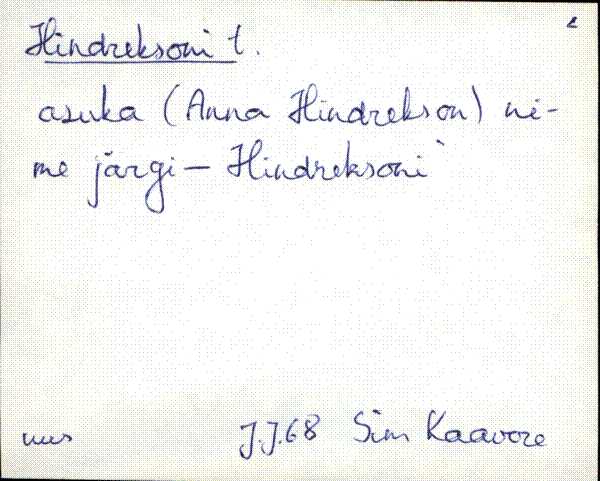 Hindreksoni t.
asuka (Anna Hindrekson) ni-
me järgi – Hindreksoni`
J.J.68 Sim Kaavere